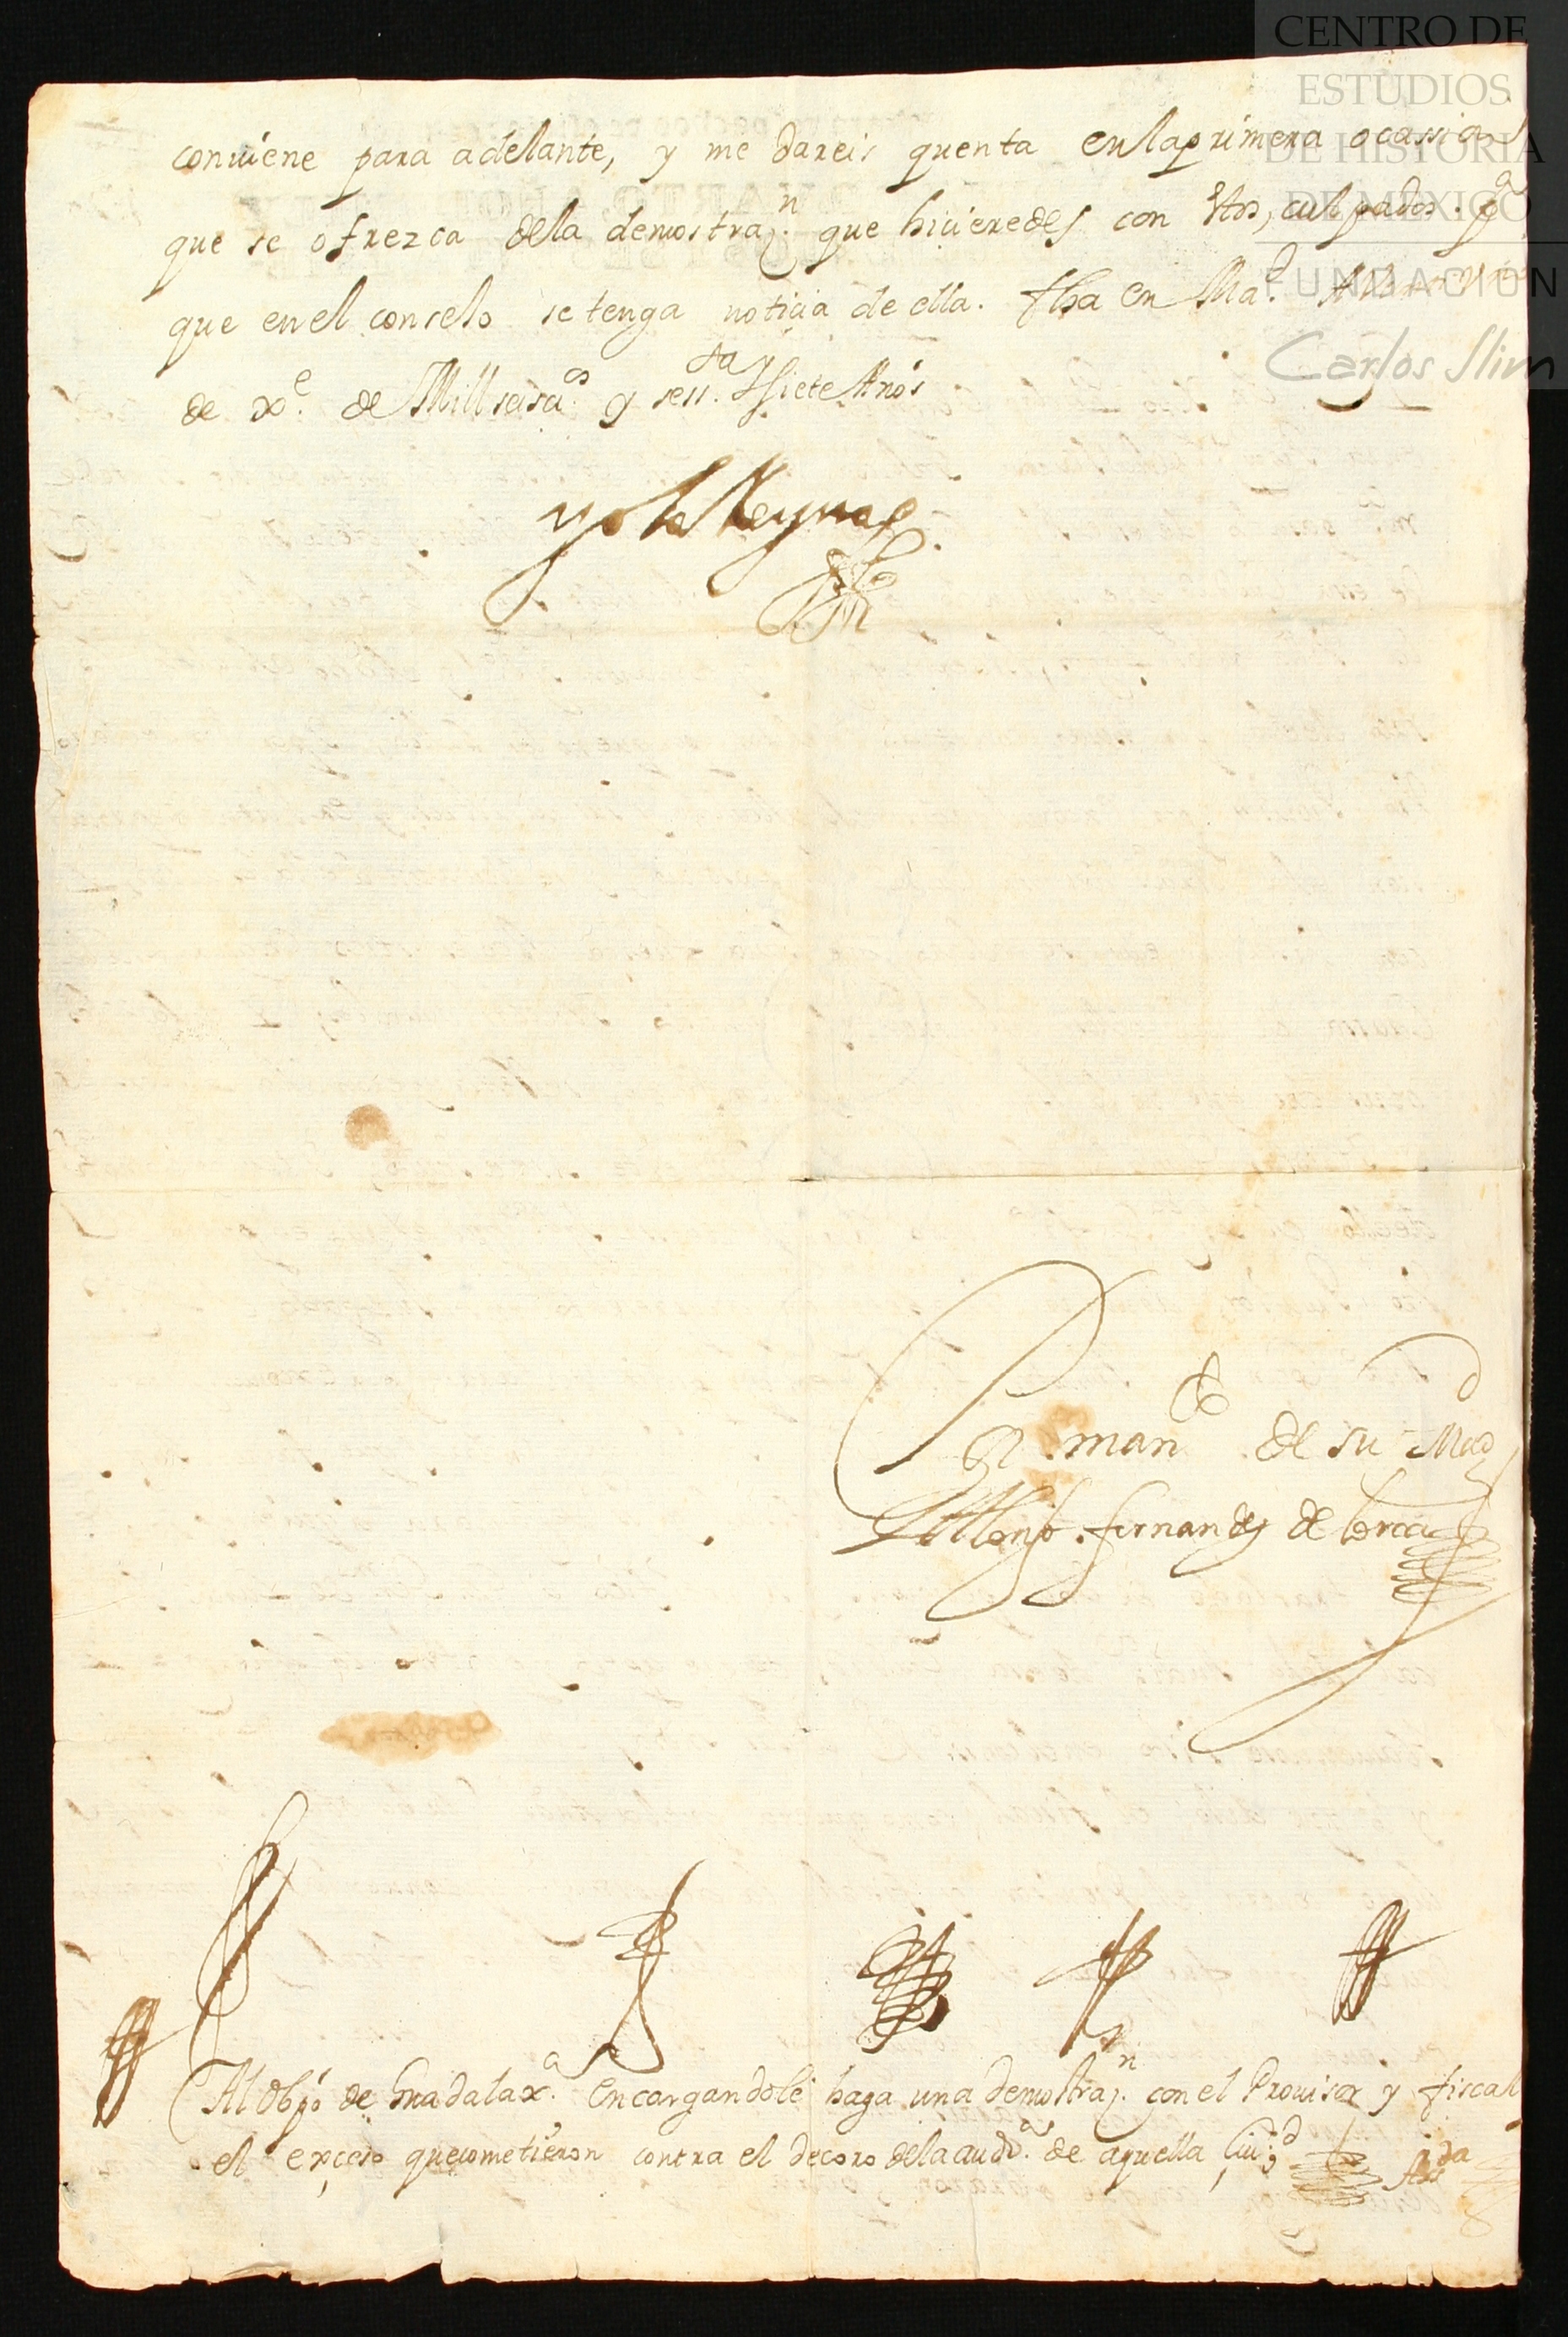 CENTRO DE
ESTUDIOS
DE HISTORIA
DE MEXICO
FUNDACIÓN
Carlos Slim
conuiene para adelante, y me dareis quenta en la primera ocassion
que se ofrezca de la demostraz.n que hicieredes con estos, culpados. p.a
que en el consejo se tenga noticia de ella. fha en Ma.d A
de x.e de Mill seisci.os y sess.ta y siete Años
yo la Reyna
Por man.do de su Mag.d
D Alonso fernandez de lorca
Al obpo de Guadalax.a encargandole haga una demostraz.n con el Prouisor y fiscal
el excesso que cometieron contra el decoro de la aud.a de aquella Ciu.d